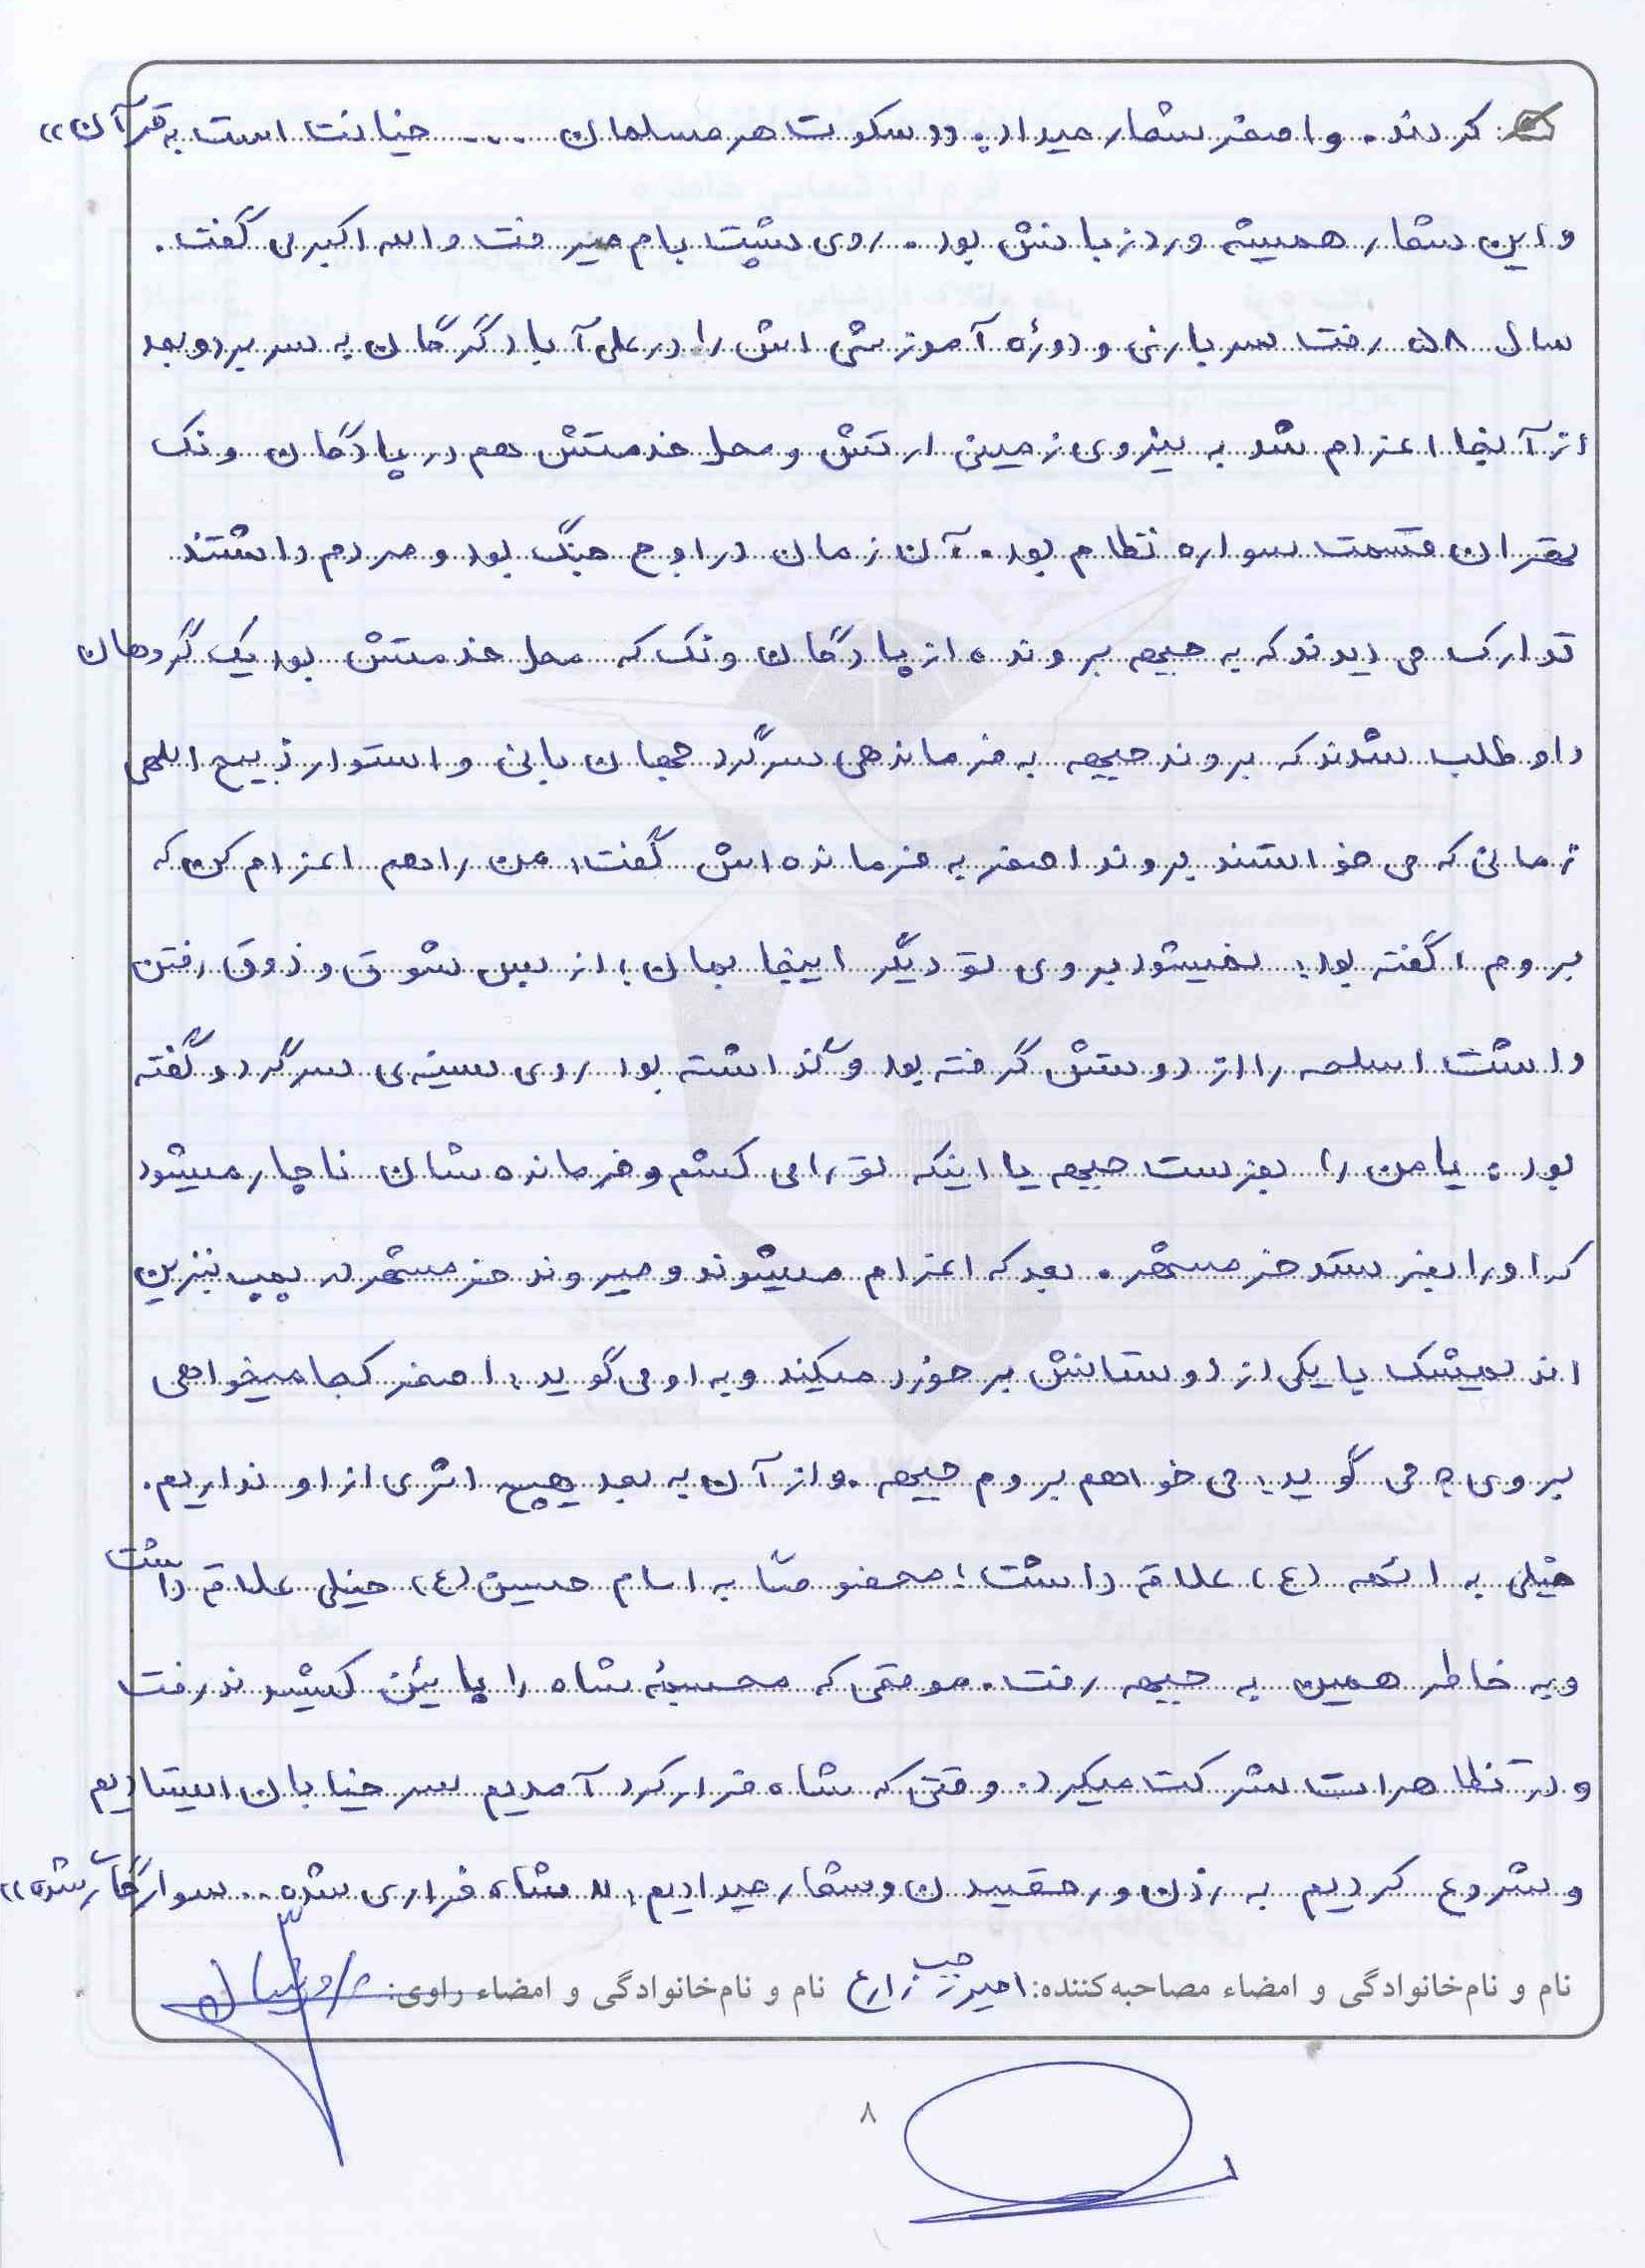 کردند. و اصغر شعار میداد: «سکوت هر مسلمان .... خیانت است به قرآن»
و این شعار همیشه ورد زبانش بود. روی پشت بام میرفت و الله اکبر می گفت.
سال ۵۸ رفت سربازی و دوره آموزشی اش را در علی آباد گرگان به سر برد و بعد
از آنجا اعزام شد به نیروی زمینی ارتش و محل خدمتش هم در پادگان ونک
تهران قسمت سواره نظام بود. آن زمان در اوج جنگ بود و مردم داشتند
تدارک می دیدند که به جبهه بروند. از پادگان ونک که محل خدمتش بود یک گردهان
داوطلب شدند که بروند جبهه به فرماندهی سرگرد جهان بانی و استوار ذبیح اللهی
زمانی که می خواستند بروند اصغر به فرمانده اش گفت: من را هم اعزام کن که
بروم، گفته بود: نمیشود بروی تو دیگر اینجا بمان؛ از بس شوق و ذوق رفتن
داشت اسلحه را از دوستش گرفته بود و گذاشته بود روی سینه‌ی سرگرد و گفته
بود: یا من را بفرست جبهه یا اینکه تو را می کشم و فرمانده شان ناچار میشود
که او را بفرستد خرمشهر. بعد که اعزام میشوند و میروند خرمشهر در پمپ بنزین
اندیمشک با یکی از دوستانش برخورد میکند و به او می گوید: اصغر کجا میخواهی
بروی؟ می گوید: می خواهم بروم جبهه. و از آن به بعد هیچ اثری از او نداریم.
خیلی به ائمه (ع) علاقه داشت؛ مخصوصاً به امام حسین (ع) خیلی علاقه داشت
و به خاطر همین به جبهه رفت. موقعی که مجسمه شاه را پایین کشیدند رفت
و در تظاهرات شرکت میکرد. وقتی که شاه فرار کرد آمدیم سر خیابان ایستادیم
و شروع کردیم به زدن و رقصیدن و شعار میدادیم: «شاه فراری شده.. سوار گاری شده»
نام و نام‌خانوادگی و امضاء مصاحبه‌کننده: امیر رجب زارع نام و نام‌خانوادگی و امضاء راوی:
۸